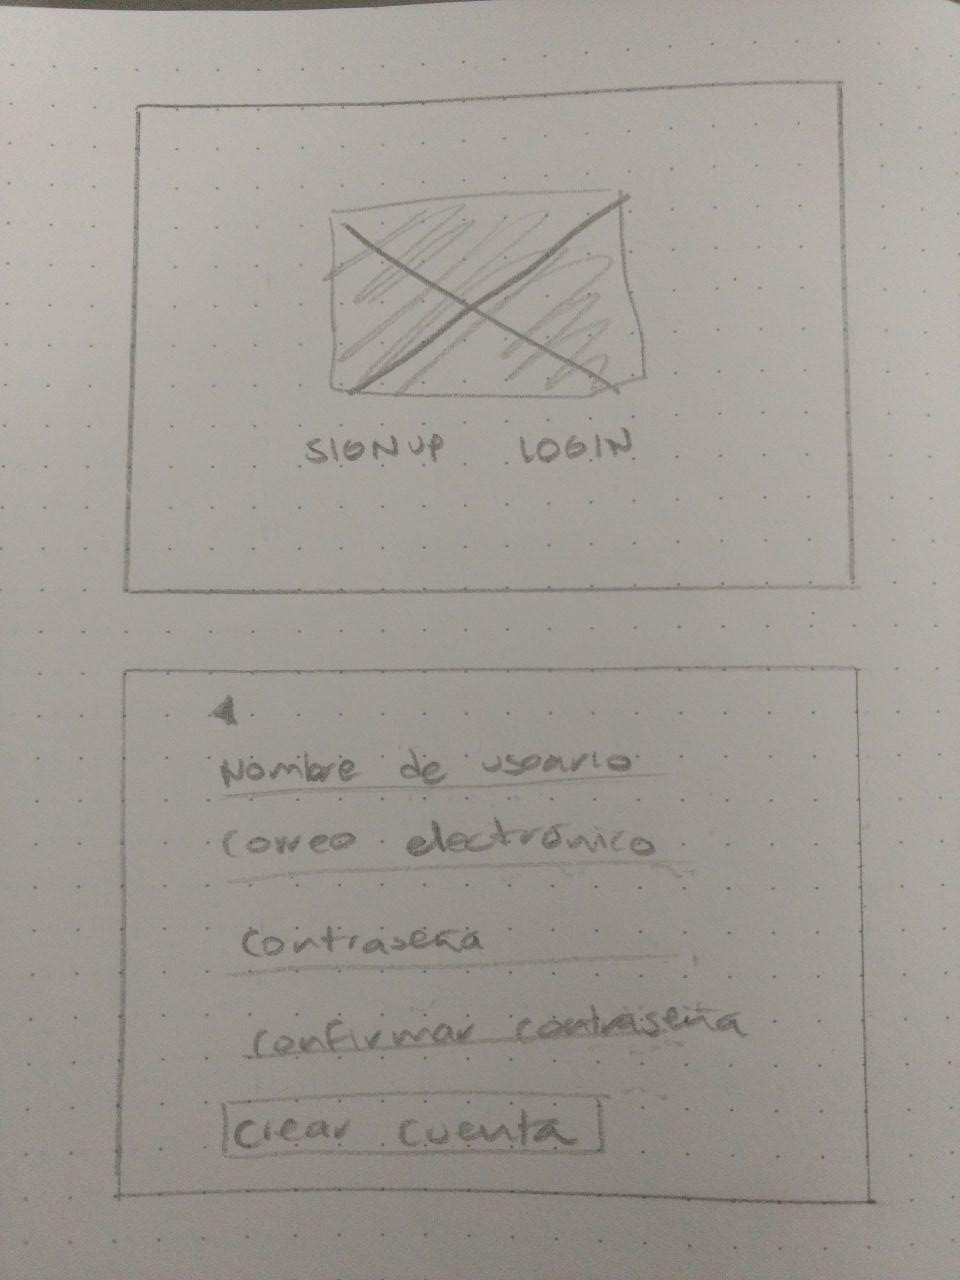 SIGNUP LOGIN
Nombre de usuario
Correo electrónico
Contraseña
Confirmar contraseña
Crear cuenta